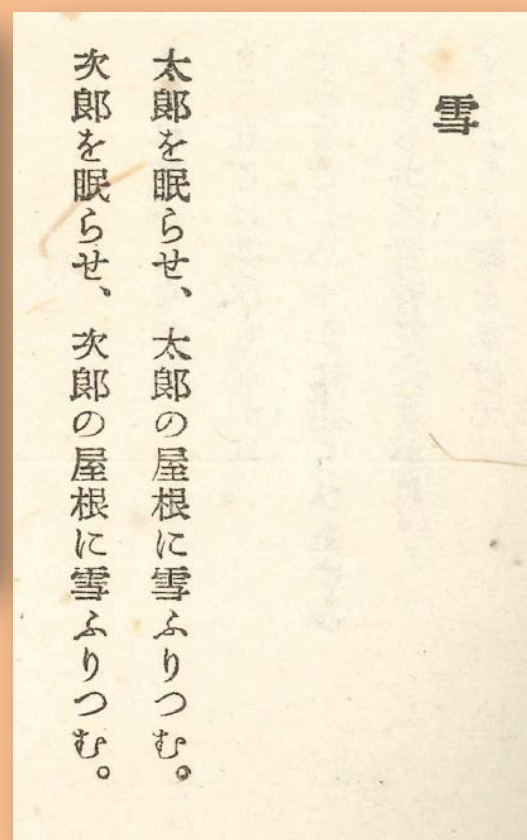 雪
太郎を眠らせ、太郎の屋根に雪ふりつむ。
次郎を眠らせ、次郎の屋根に雪ふりつむ。